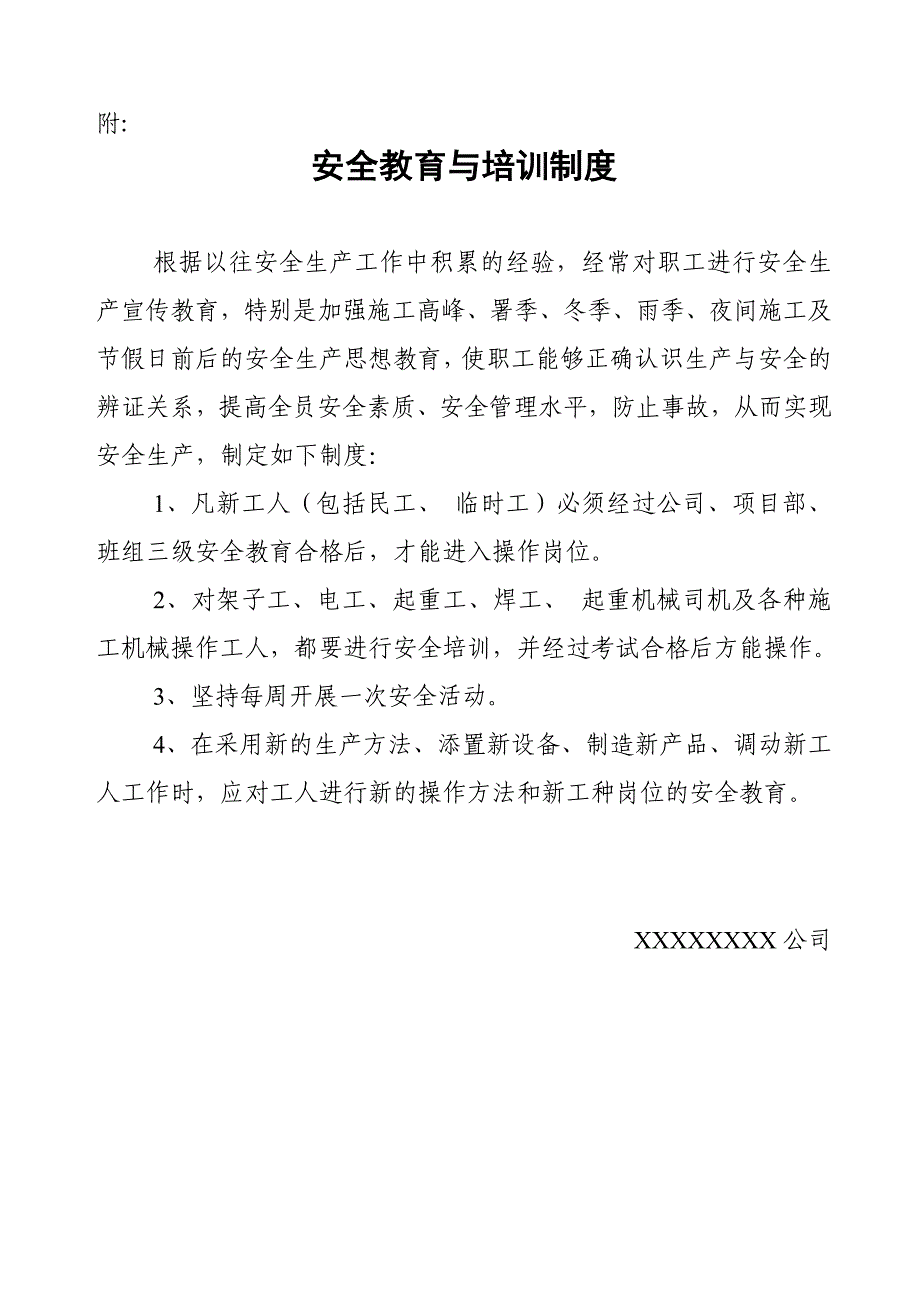 附:
安全教育与培训制度
根据以往安全生产工作中积累的经验，经常对职工进行安全生
产宣传教育，特别是加强施工高峰、署季、冬季、雨季、夜间施工及
节假日前后的安全生产思想教育，使职工能够正确认识生产与安全的
辨证关系，提高全员安全素质、安全管理水平，防止事故，从而实现
安全生产，制定如下制度：
1、凡新工人（包括民工、 临时工）必须经过公司、项目部、
班组三级安全教育合格后，才能进入操作岗位。
2、对架子工、电工、起重工、焊工、 起重机械司机及各种施
工机械操作工人，都要进行安全培训，并经过考试合格后方能操作。
3、坚持每周开展一次安全活动。
4、在采用新的生产方法、添置新设备、制造新产品、调动新工
人工作时，应对工人进行新的操作方法和新工种岗位的安全教育。
XXXXXXXX 公司